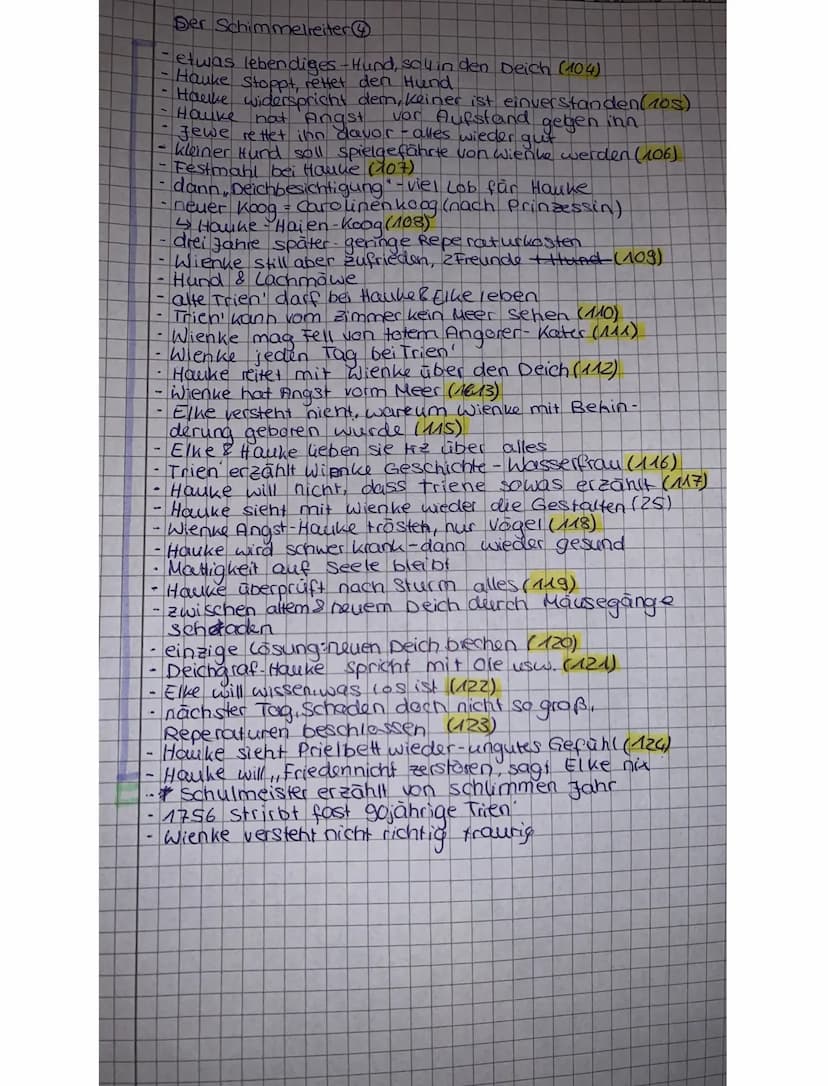 Der Schimmelreiter ④
- etwas lebendiges - Hund, soll in den Deich (104)
- Hauke stoppt, rettet den Hund
- Hauke widerspricht dem, keiner ist einverstanden (105)
- Hauke hat Angst vor Aufstand gegen inn
- Jewe rettet ihn davor - alles wieder gut
- kleiner Hund soll Spielgefährte von Wienke werden (106)
- Festmahl bei Hauke (107)
- dann „Deichbesichtigung" - viel Lob für Hauke
- neuer Koog = Carolinenkoog (nach Prinzessin)
↳ Hauke-Haien-Koog (108)
- drei Jahre später - geringe Reperaturkosten
- Wienke still aber zufrieden, 2 Freunde + Hund (109)
- Hund & Lachmöwe
- alte Trien' darf bei Hauke & Elke leben
- Trien' kann vom Zimmer kein Meer sehen (110)
- Wienke mag Fell von totem Angorer-Kater (111)
- Wienke jeden Tag bei Trien'
- Hauke reitet mit Wienke über den Deich (112)
- Wienke hat Angst vorm Meer (113)
- Elke versteht nicht, wareum Wienke mit Behin-
derung geboren wurde (115)
- Elke & Hauke lieben sie trz über alles
- Trien' erzählt Wienke Geschichte - Wasserfrau (116)
- Hauke will nicht, dass Triene sowas erzählt (117)
- Hauke sieht mit Wienke wieder die Gestalten (25)
- Wienke Angst - Hauke trösten, nur Vögel (118)
- Hauke wird schwer krank - dann wieder gesund
- Mattigkeit auf Seele bleibt
- Hauke überprüft nach Sturm alles (119)
- zwischen altem & neuem Deich durch Mäusegänge
Schaden
- einzige Lösung: neuen Deich brechen (120)
- Deichgraf-Hauke spricht mit Ole usw. (121)
- Elke will wissen was los ist (122)
- nächster Tag, Schaden doch nicht so groß,
Reperaturen beschlossen (123)
- Hauke sieht Prielbett wieder - ungutes Gefühl (124)
- Hauke will „Frieden nicht zerstören, sagt Elke nix
- * Schulmeister erzählt von schlimmen Jahr
- 1756 strirbt fast 90jährige Trien'
- Wienke versteht nicht richtig traurig